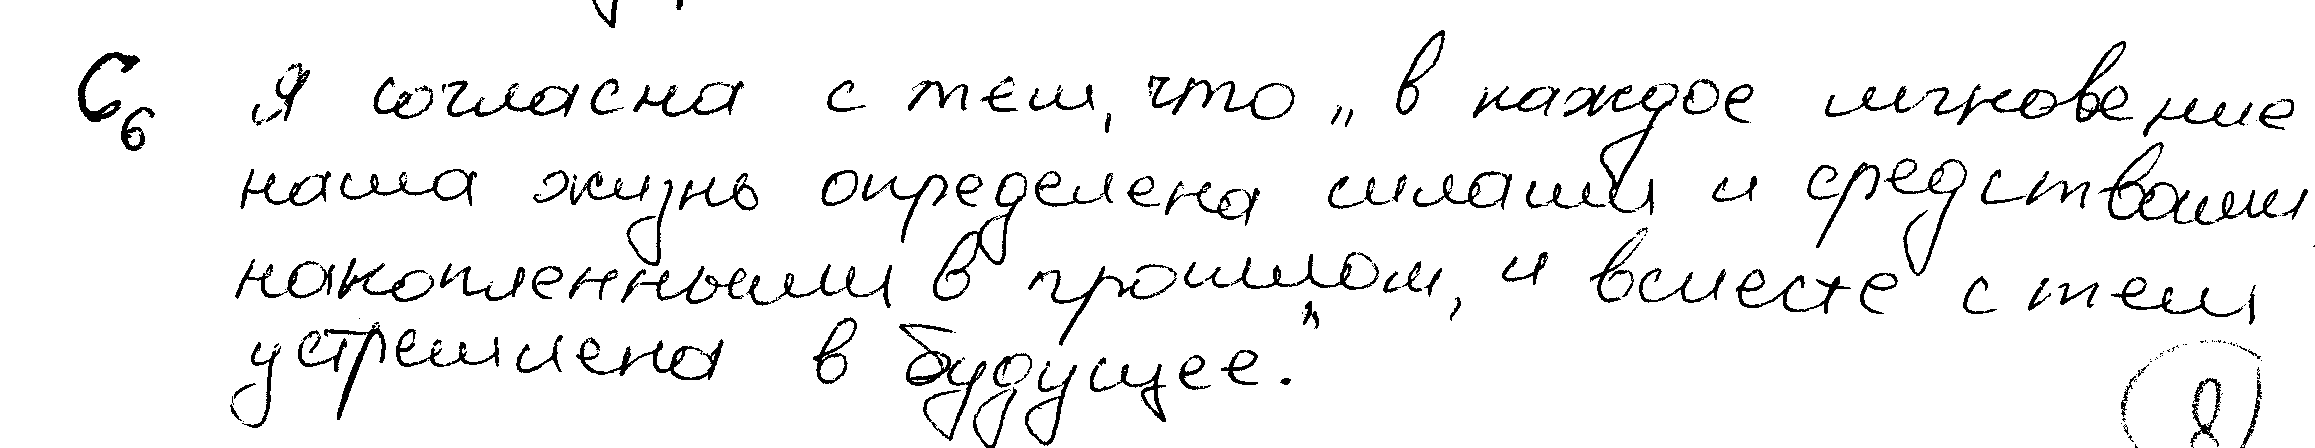 C6 Я согласна с тем, что „в каждое мгновение
наша жизнь определена силами и средствами
накопленными в прошлом, и вместе с тем
устремлена в будущее."
8